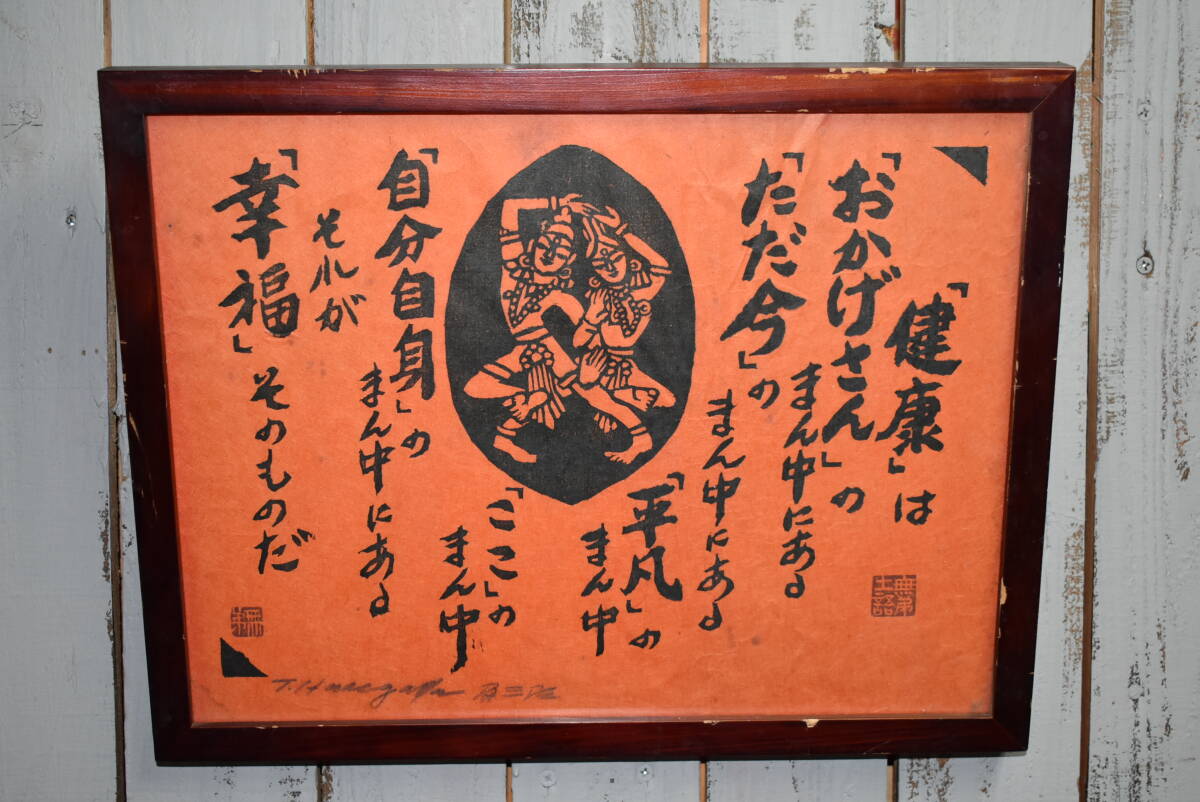 「健康」は
「おかげさん」の
まん中にある
「ただ今」の
まん中にある
「平凡」の
まん中
「ここ」の
まん中
「自分自身」の
まん中にある
それが
「幸福」そのものだ
T. Hasegawa